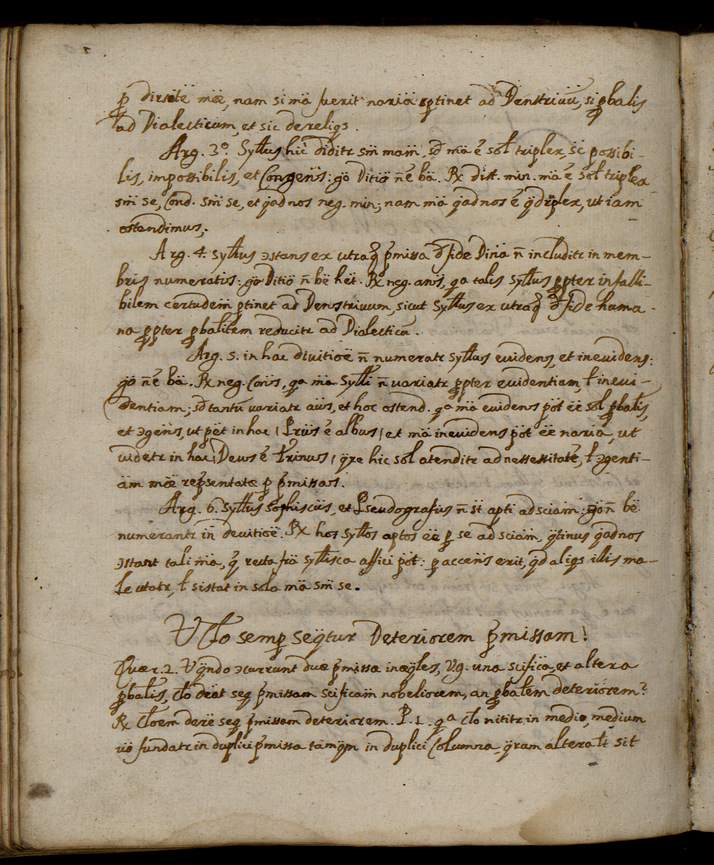 p dirsitē mæ, nam si mā fuerit naria ptinet ad Denstriuū, si pbalis
ad Dialecticum, et sic de reliqs.
Arg. 3.º Syllus hic diditr sm̄ mam̄, sd mā ē sol triplex, sc possibi-
lis, impossibilis, et Congens: gō Ditiō n̄ ē ba. R dist. min. mā ē sol triplex
sm̄ se, Cond. sm̄ se, et qad nos neg. min; nam mā qad nos ē qdrplex, ut iam
ostendimus.
Arg. 4. Syllus ɔstans ex utraq pmissa de fide Dina n̄ includitr in mem-
bris numeratis: gō Ditiō n̄ bē het. R neg. ans, qa talis Syllus ppter infalli-
bilem certudem ptinet ad Denstriuum, sicut Syllus ex utraq de fide huma-
na ppter pbalitem reducitr ad Dialecticū.
Arg. 5. in hac diuitioē n̄ numeratr Syllus euidens, et ineuidens:
gō n̄ ē ba. R neg. Cons, qa mā Sylli n̄ variatr ppter euidentiam l ineui-
dentiam; sd tantū variatr aūs, et hoc ostend. qa mā euidens pōt eē sol pbalis,
et ɔgens, ut pāt in hac ( Prius ē albus ) et mā ineuidens pōt eē naria, ut
uidetr in hac ( Deus ē trinus ) qre hic sol atenditr ad nessessitatē, l ɔgenti-
am mæ repsentatæ p pmissas.
Arg. 6. Syllus Sophiscus, et Pseudografus n̄ st apti ad sciam: gō n̄ bē
numerantr in deuitioē. R hos Syllos aptos eē p se ad sciam, qtinus qad nos
ɔstant tali mā, q recta frā Syllisca affici pōt: p accens erit, qd aliqs illis ma-
le utatr, l sistat in sola mā sm̄ se.
Vclo semp seqtur Deteriorem pmissam!
Quær. 2. Vqndo ɔcurrunt duæ pmissæ inæqles, Vg. una scifica, et altera
pbalis, Clo deat seq pmissam scificam nobeliorem, an pbalem deteriorem?
R Cloem̄ dere seq pmissam deteriorem. P. 1. qa Clo nititr in medio, medium
uo fundatr in duplici pmissa tamqm in duplici Columna, qram altera si sit